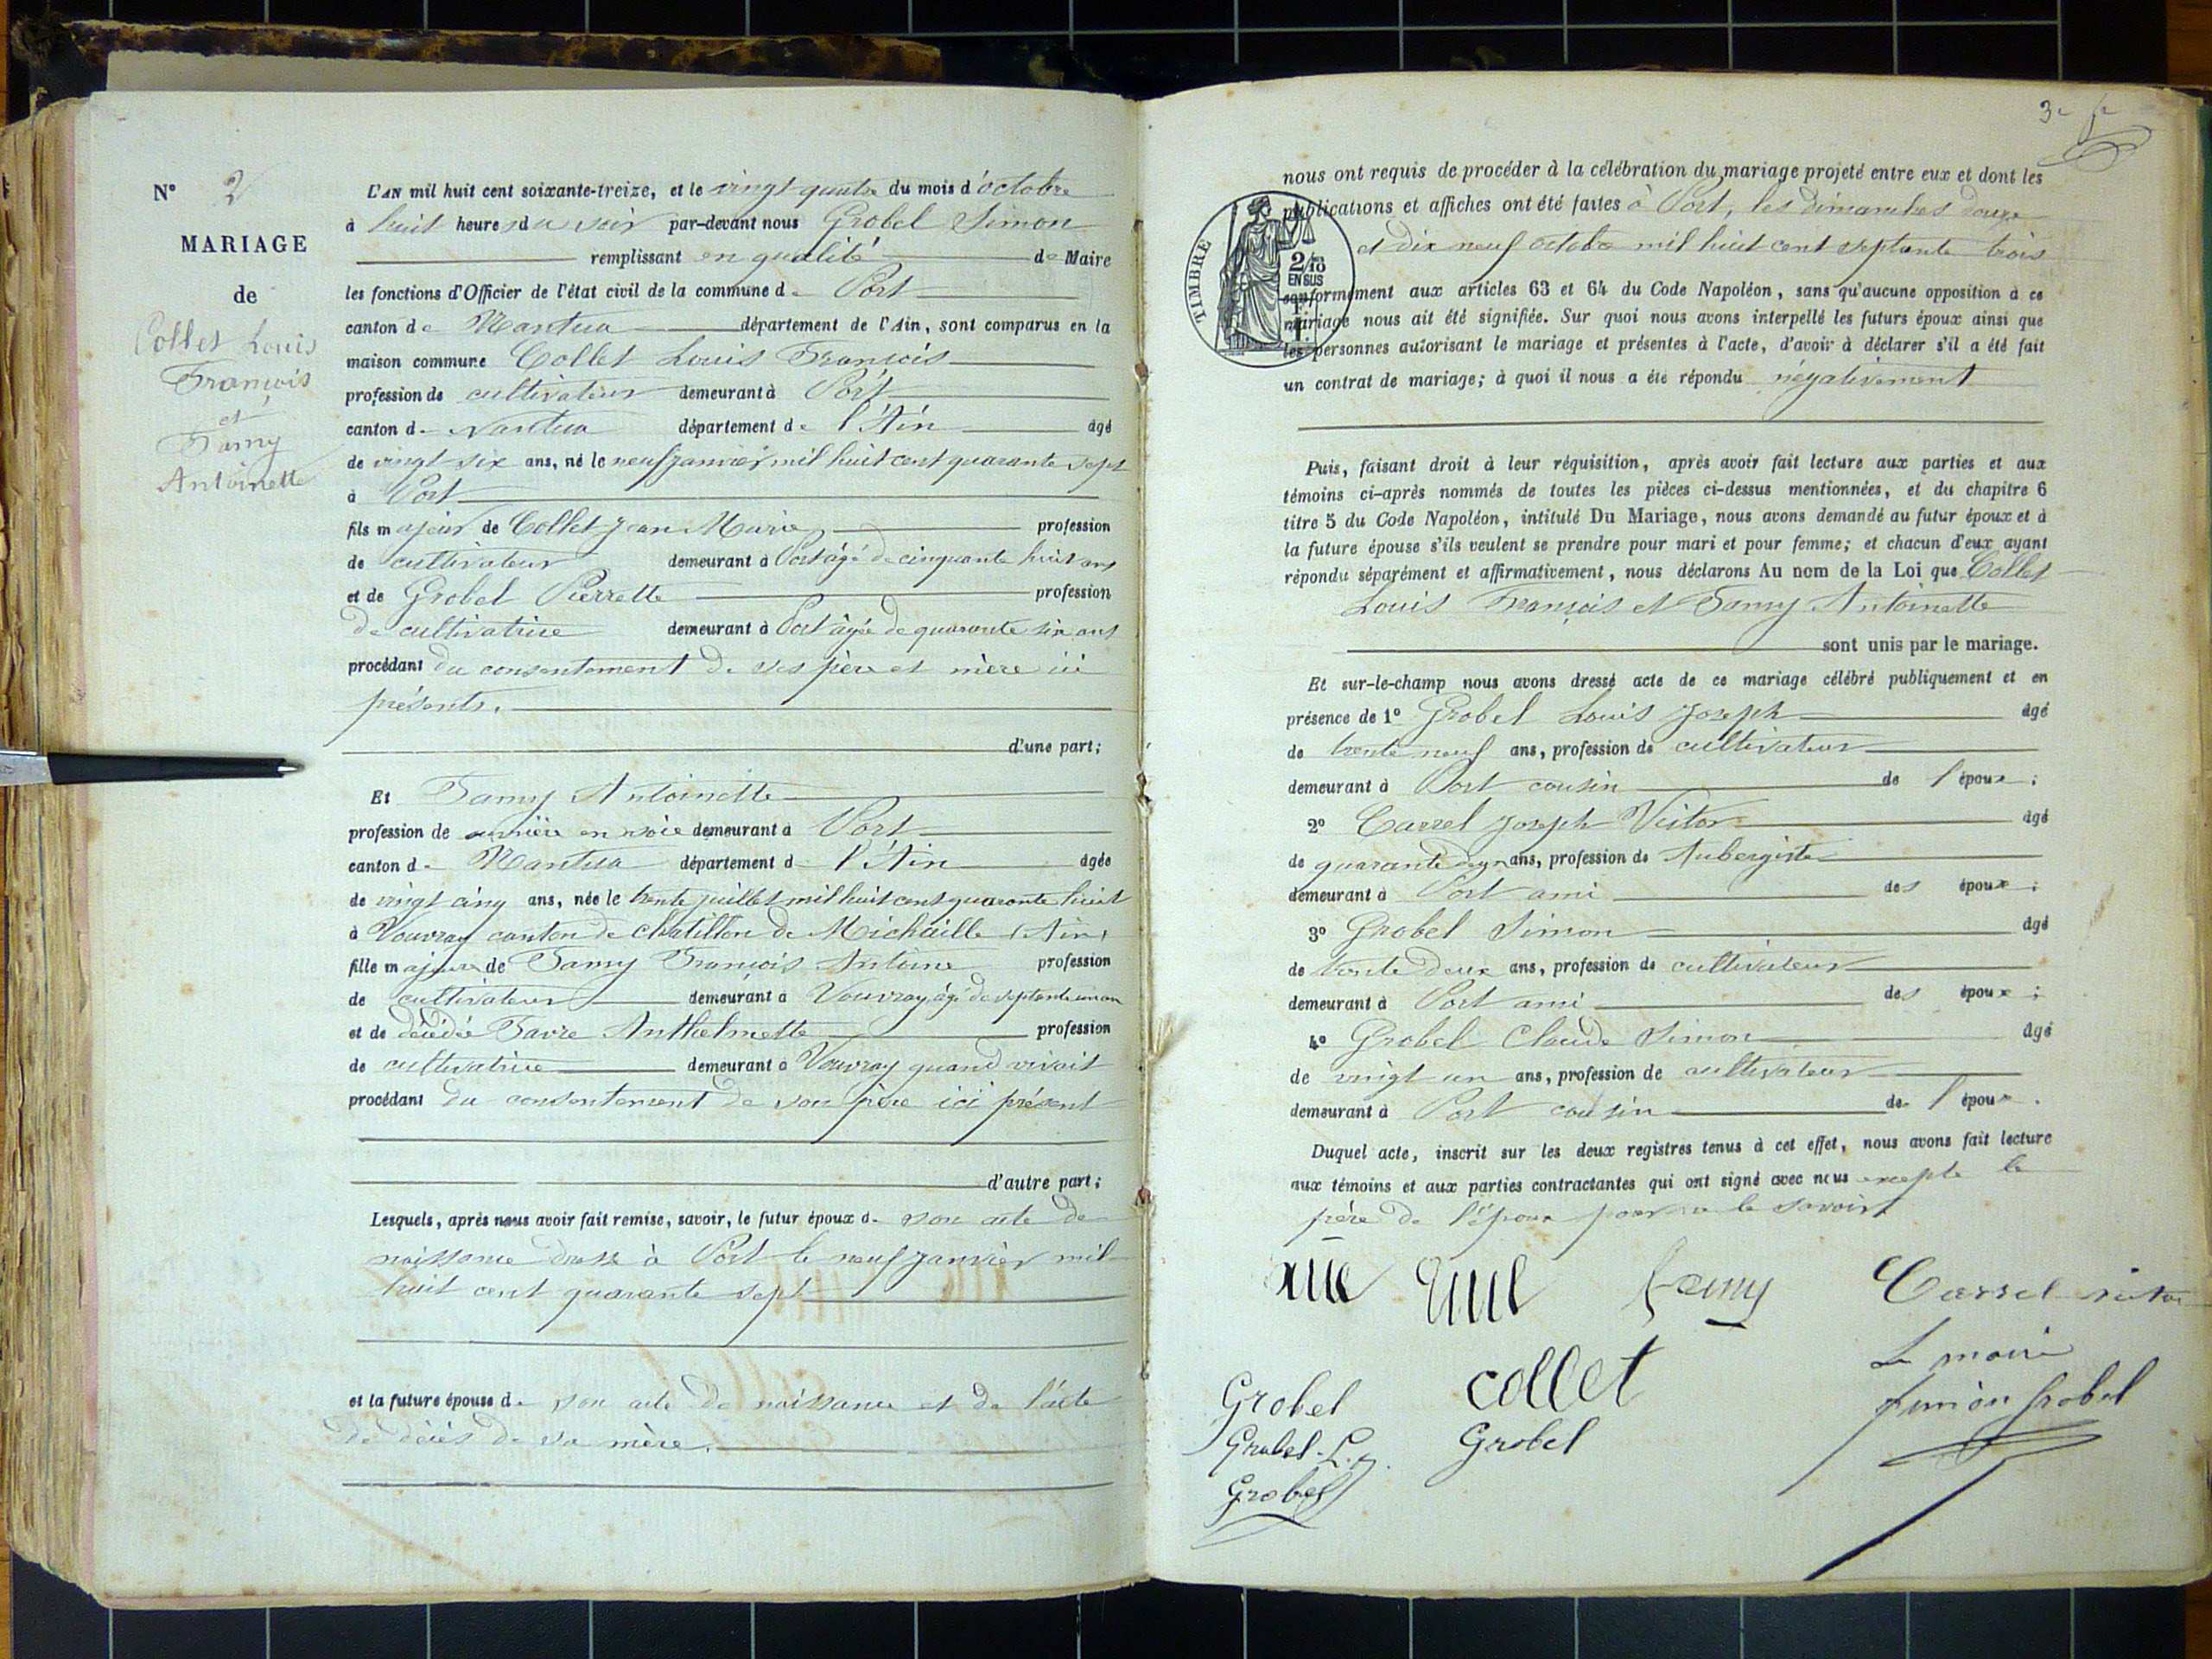 N° 2
MARIAGE
de
Collet Louis
François
et
Famy
Antoinette
L'AN mil huit cent soixante-treize, et le vingt quatre du mois d'octobre
à huit heures du soir par-devant nous Grobel Simon
remplissant en qualité de Maire
les fonctions d'Officier de l'état civil de la commune de Port
canton de Nantua département de l'Ain, sont comparus en la
maison commune Collet Louis François
profession de cultivateur demeurant à Port
canton de Nantua département de l'Ain âgé
de vingt six ans, né le neuf janvier mil huit cent quarante sept
à Port
fils majeur de Collet Jean Marie profession
de cultivateur demeurant à Port âgé de cinquante huit ans
et de Grobel Pierrette profession
de cultivatrice demeurant à Port âgée de quarante six ans
procédant du consentement de ses père et mère ici
présents.
d'une part;
Et Famy Antoinette
profession de ouvrière en soie demeurant à Port
canton de Nantua département de l'Ain âgée
de vingt cinq ans, née le trente juillet mil huit cent quarante huit
à Vouvray canton de Chatillon de Michaille (Ain)
fille majeure de Famy François Antoine profession
de cultivateur demeurant à Vouvray âgé de septante un an
et de décédée Favre Anthelmette profession
de cultivatrice demeurant à Vouvray quand vivait
procédant du consentement de son père ici présent
d'autre part;
Lesquels, après nous avoir fait remise, savoir, le futur époux de son acte de
naissance dressé à Port le neuf janvier mil
huit cent quarante sept
et la future épouse de son acte de naissance et de l'acte
de décès de sa mère.
nous ont requis de procéder à la célébration du mariage projeté entre eux et dont les
publications et affiches ont été faites à Port, les dimanches douze
et dix neuf octobre mil huit cent septante trois
TIMBRE
2/10
EN SUS
conformément aux articles 63 et 64 du Code Napoléon, sans qu'aucune opposition à ce
mariage nous ait été signifiée. Sur quoi nous avons interpellé les futurs époux ainsi que
les personnes autorisant le mariage et présentes à l'acte, d'avoir à déclarer s'il a été fait
un contrat de mariage; à quoi il nous a été répondu négativement
Puis, faisant droit à leur réquisition, après avoir fait lecture aux parties et aux
témoins ci-après nommés de toutes les pièces ci-dessus mentionnées, et du chapitre 6
titre 5 du Code Napoléon, intitulé Du Mariage, nous avons demandé au futur époux et à
la future épouse s'ils veulent se prendre pour mari et pour femme; et chacun d'eux ayant
répondu séparément et affirmativement, nous déclarons Au nom de la Loi que Collet
Louis François et Famy Antoinette
sont unis par le mariage.
Et sur-le-champ nous avons dressé acte de ce mariage célébré publiquement et en
présence de 1° Grobel Louis Joseph âgé
de trente neuf ans, profession de cultivateur
demeurant à Port cousin de l'époux;
2° Carrel Joseph Victor âgé
de quarante deux ans, profession de Aubergiste
demeurant à Port ami des époux;
3° Grobel Simon âgé
de trente deux ans, profession de cultivateur
demeurant à Port ami des époux;
4° Grobel Claude Simon âgé
de vingt un ans, profession de cultivateur
demeurant à Port cousin de l'époux.
Duquel acte, inscrit sur les deux registres tenus à cet effet, nous avons fait lecture
aux témoins et aux parties contractantes qui ont signé avec nous excepté le
père de l'époux pour ne le savoir
famy
Carrel victor
collet
Le maire
Simon Grobel
Grobel
Grobel
Grobel L.
Grobel